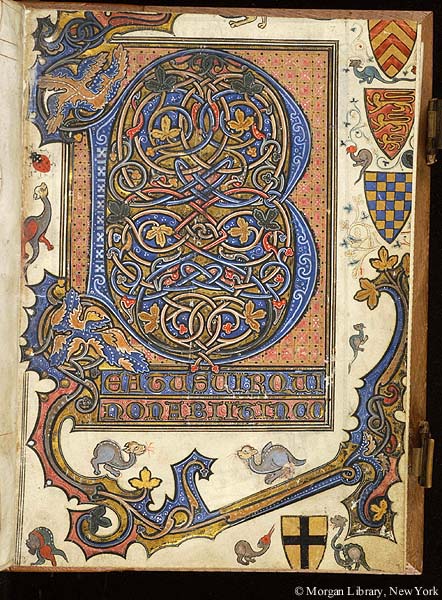 B
EATUS UIR QUI
NON ABIIT IN CO
© Morgan Library, New York